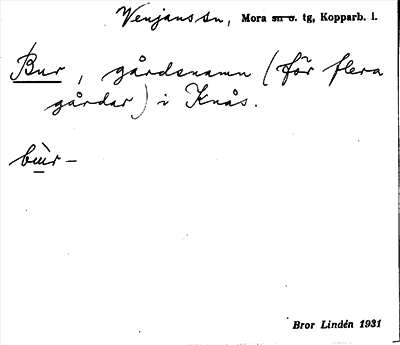 Venjans sn, Mora sn o. tg, Kopparb. l.
Bur, gårdsnamn (för flera
gårdar) i Knås.
bùr–
Bror Lindén 1931